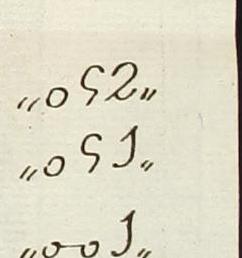 „052„
„051„
„001„